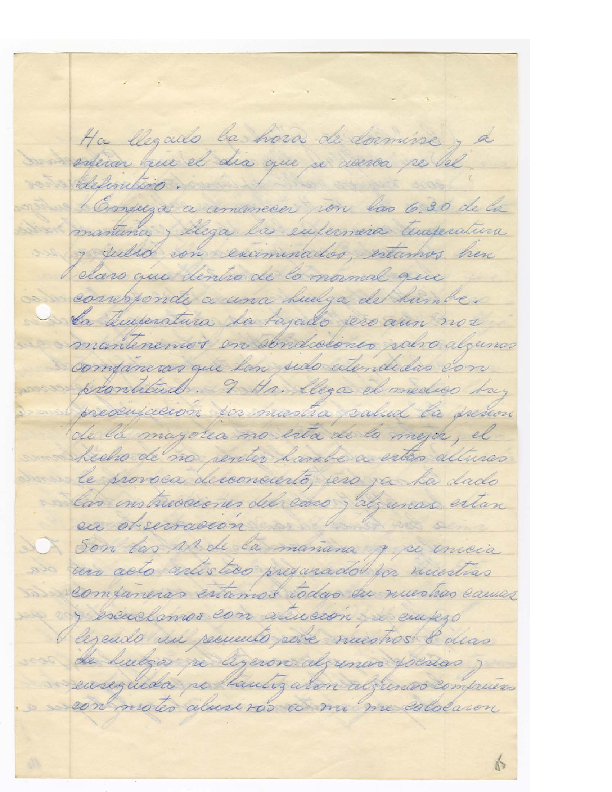 Ha llegado la hora de dormirse y a
esperar que el día que se acerca sea el
definitivo.
Empieza a amanecer son las 6,30 de la
mañana y llega la enfermera temperatura
y pulso son examinados, estamos bien
claro que dentro de lo normal que
corresponde a una huelga de hambre.
La temperatura ha bajado pero aún nos
mantenemos en condiciones salvo algunas
compañeras que han sido atendidas con
prontitud. 9 Hr. llega el medico hay
preocupación por nuestra salud la presion
de la mayoria no esta de la mejor, el
hecho de no sentir hambre a estas alturas
le provoca disconcierto, pero ya ha dado
las instrucciones del caso y algunas estan
en observación
Son las 11 de la mañana y se inicia
un acto artistico preparado por nuestras
compañeras estamos todas en nuestras camas
y escuchamos con atención se empezo
leyendo un recuento sobre nuestros 8 dias
de huelga se leyeron algunas poesias y
enseguida se bautizaron algunas compañeras
con motes alusivos a mi me colocaron